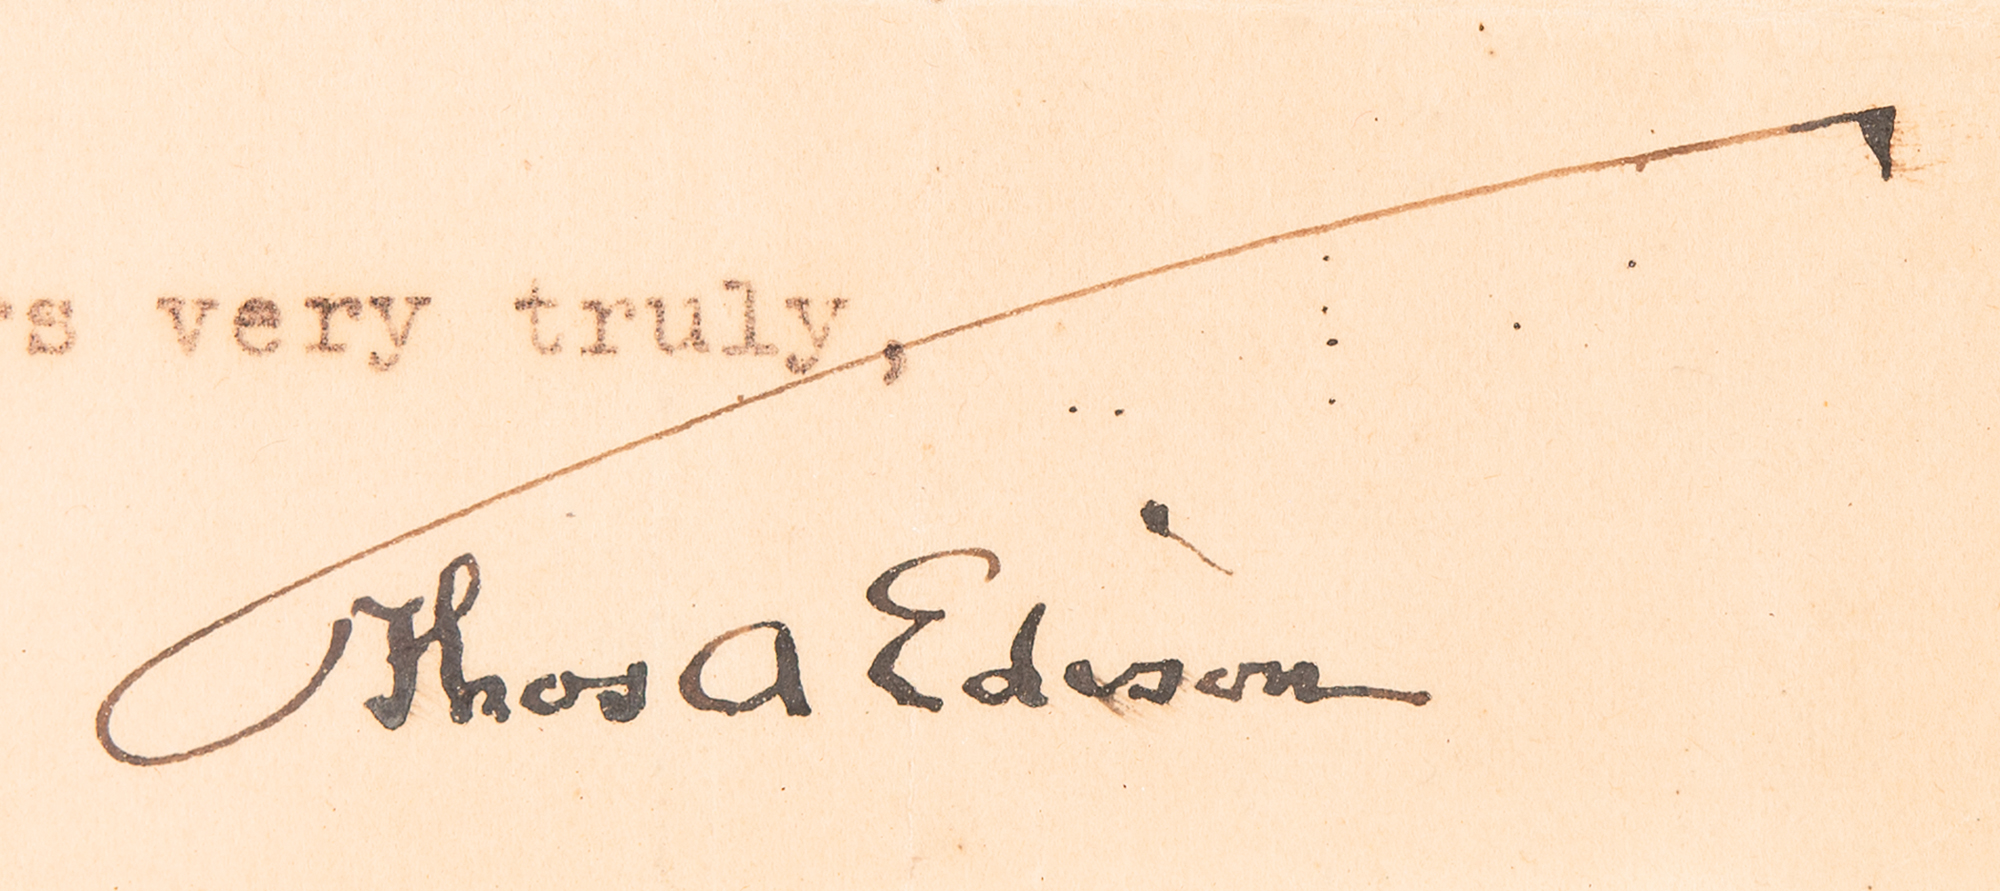 rs very truly,
Thos A Edison